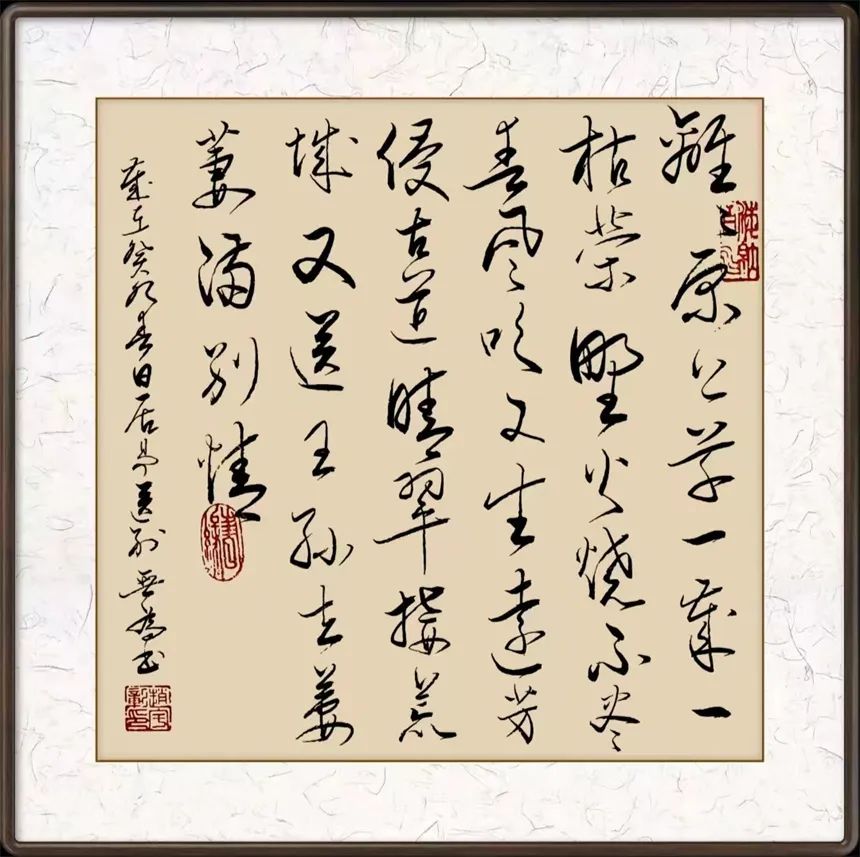 離〻原上草一歲一
枯榮野火燒不盡
春風吹又生遠芳
侵古道晴翠接荒
城又送王孫去萋
萋滿別情
歲在癸卯春日居易送別書